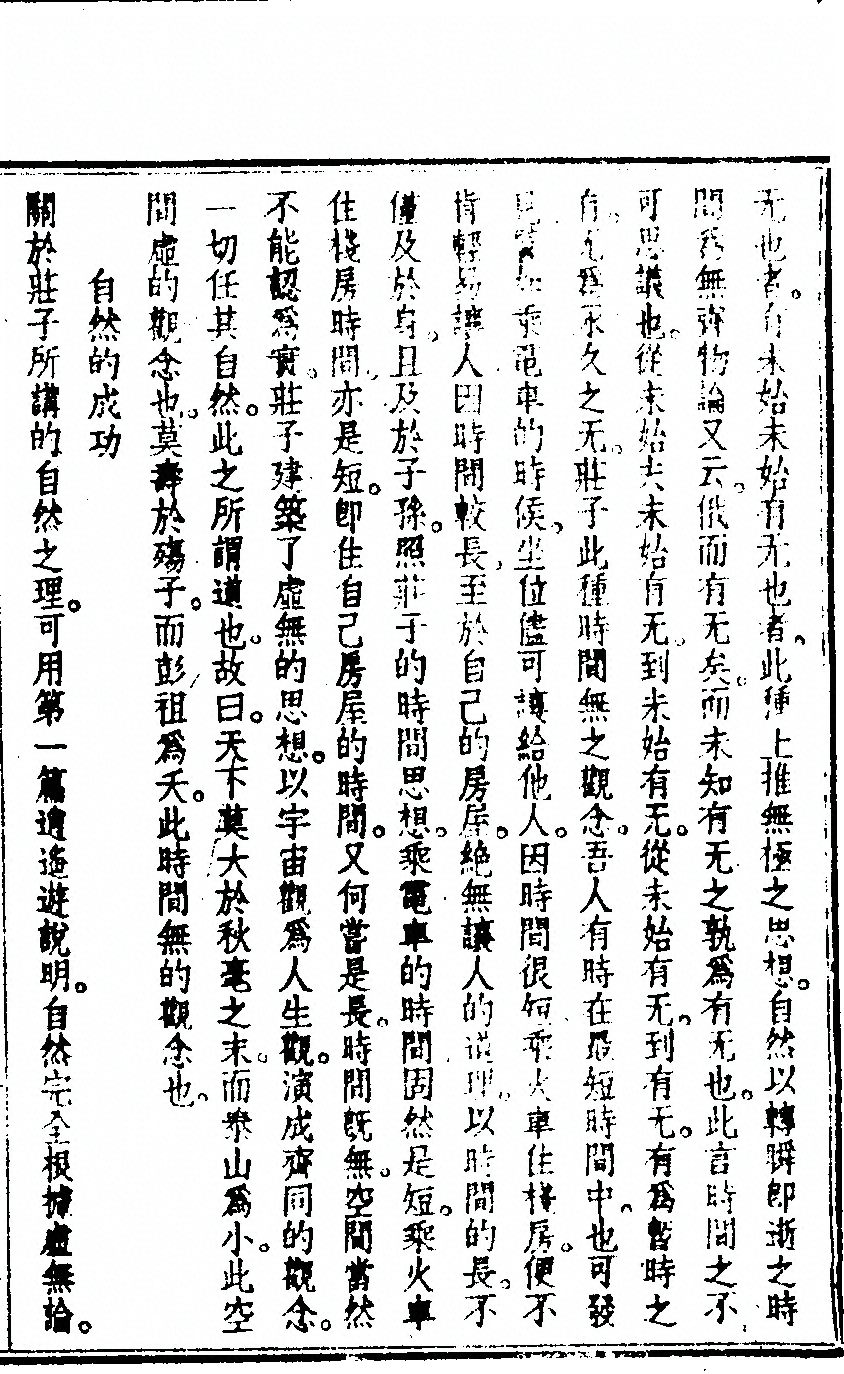 无也者。有未始未始有无也者。此種上推無極之思想。自然以轉瞬即逝之時
間爲無齊物論又云。俄而有无矣。而未知有无之孰爲有无也。此言時間之不
可思議也。從未始夫未始有无。到未始有无。從未始有无。到有无。有爲暫時之
有。无爲永久之无。莊子此種時間無之觀念。吾人有時在最短時間中。也可發
見。譬如乘電車的時候。坐位儘可讓給他人。因時間很短。乘火車住棧房。便不
肯輕易讓人因時間較長。至於自己的房屋。絕無讓人的道理。以時間的長。不
僅及於身。且及於子孫。照莊子的時間思想。乘電車的時間固然是短。乘火車
住棧房時間。亦是短。卽住自己房屋的時間。又何嘗是長。時間旣無。空間當然
不能認爲實。莊子建築了虛無的思想。以宇宙觀爲人生觀。演成齊同的觀念。
一切任其自然。此之所謂道也。故曰。天下莫大於秋毫之末。而泰山爲小。此空
間虛的觀念也。莫壽於殤子。而彭祖爲夭。此時間無的觀念也。
自然的成功
關於莊子所講的自然之理。可用第一篇逍遙遊說明。自然完全根據虛無論。